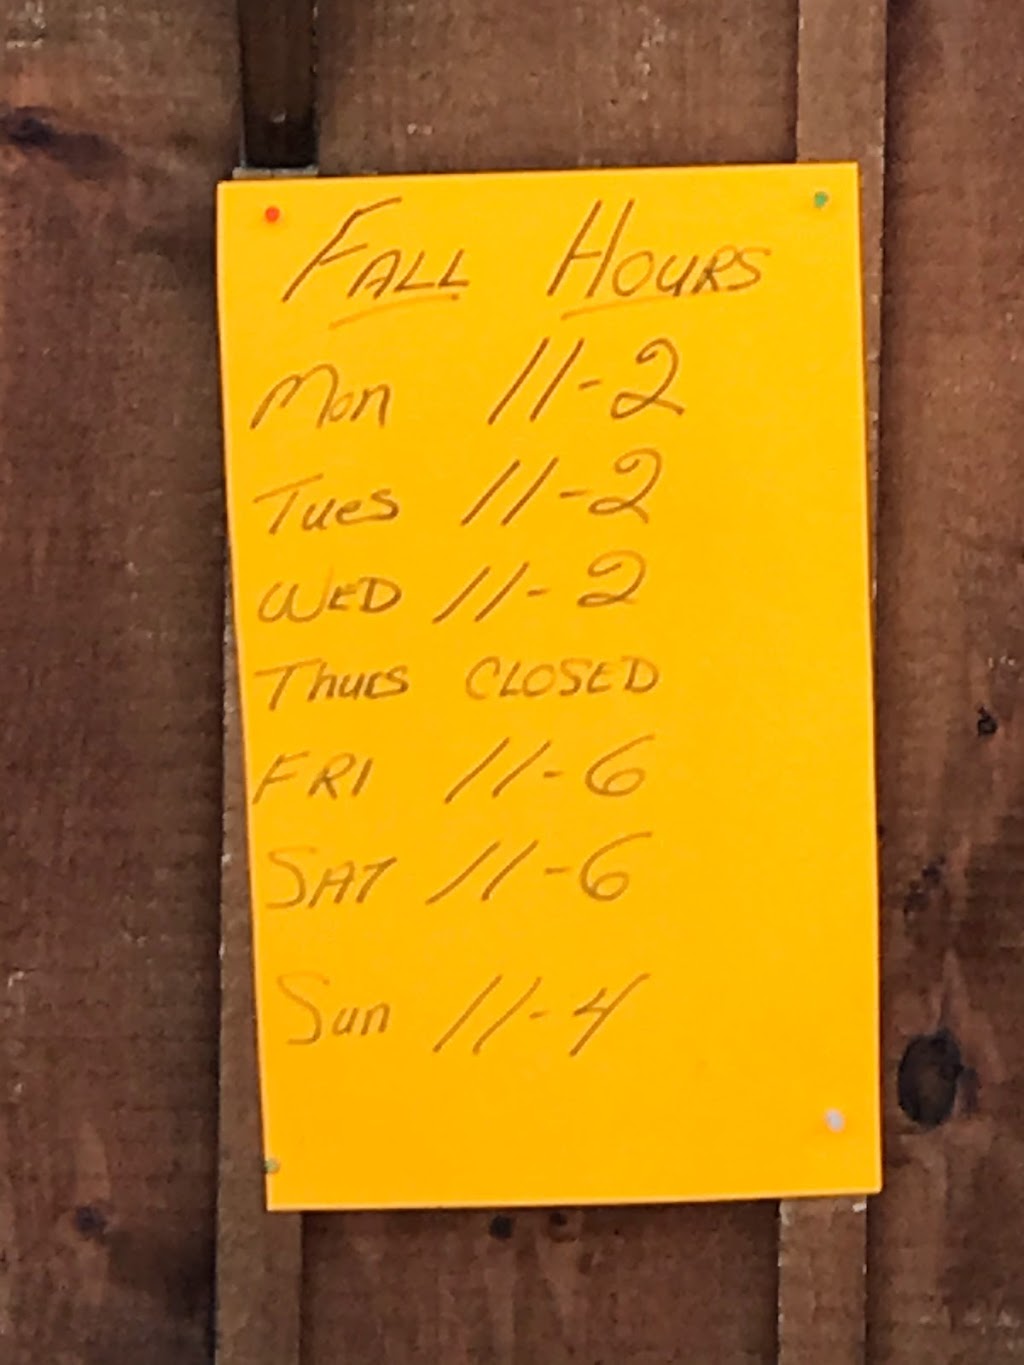 FALL HOURS
Mon 11-2
Tues 11-2
WED 11-2
Thurs CLOSED
FRI 11-6
SAT 11-6
Sun 11-4